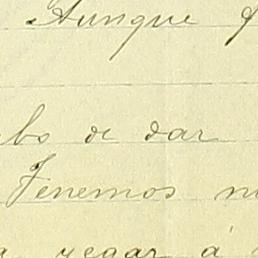 Aunque
de dar
Tenemos
regar á